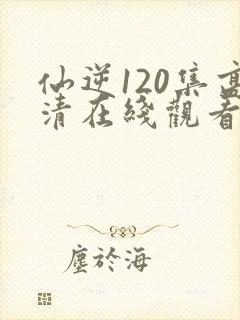 仙逆120集高
清在綫觀看
塵於海